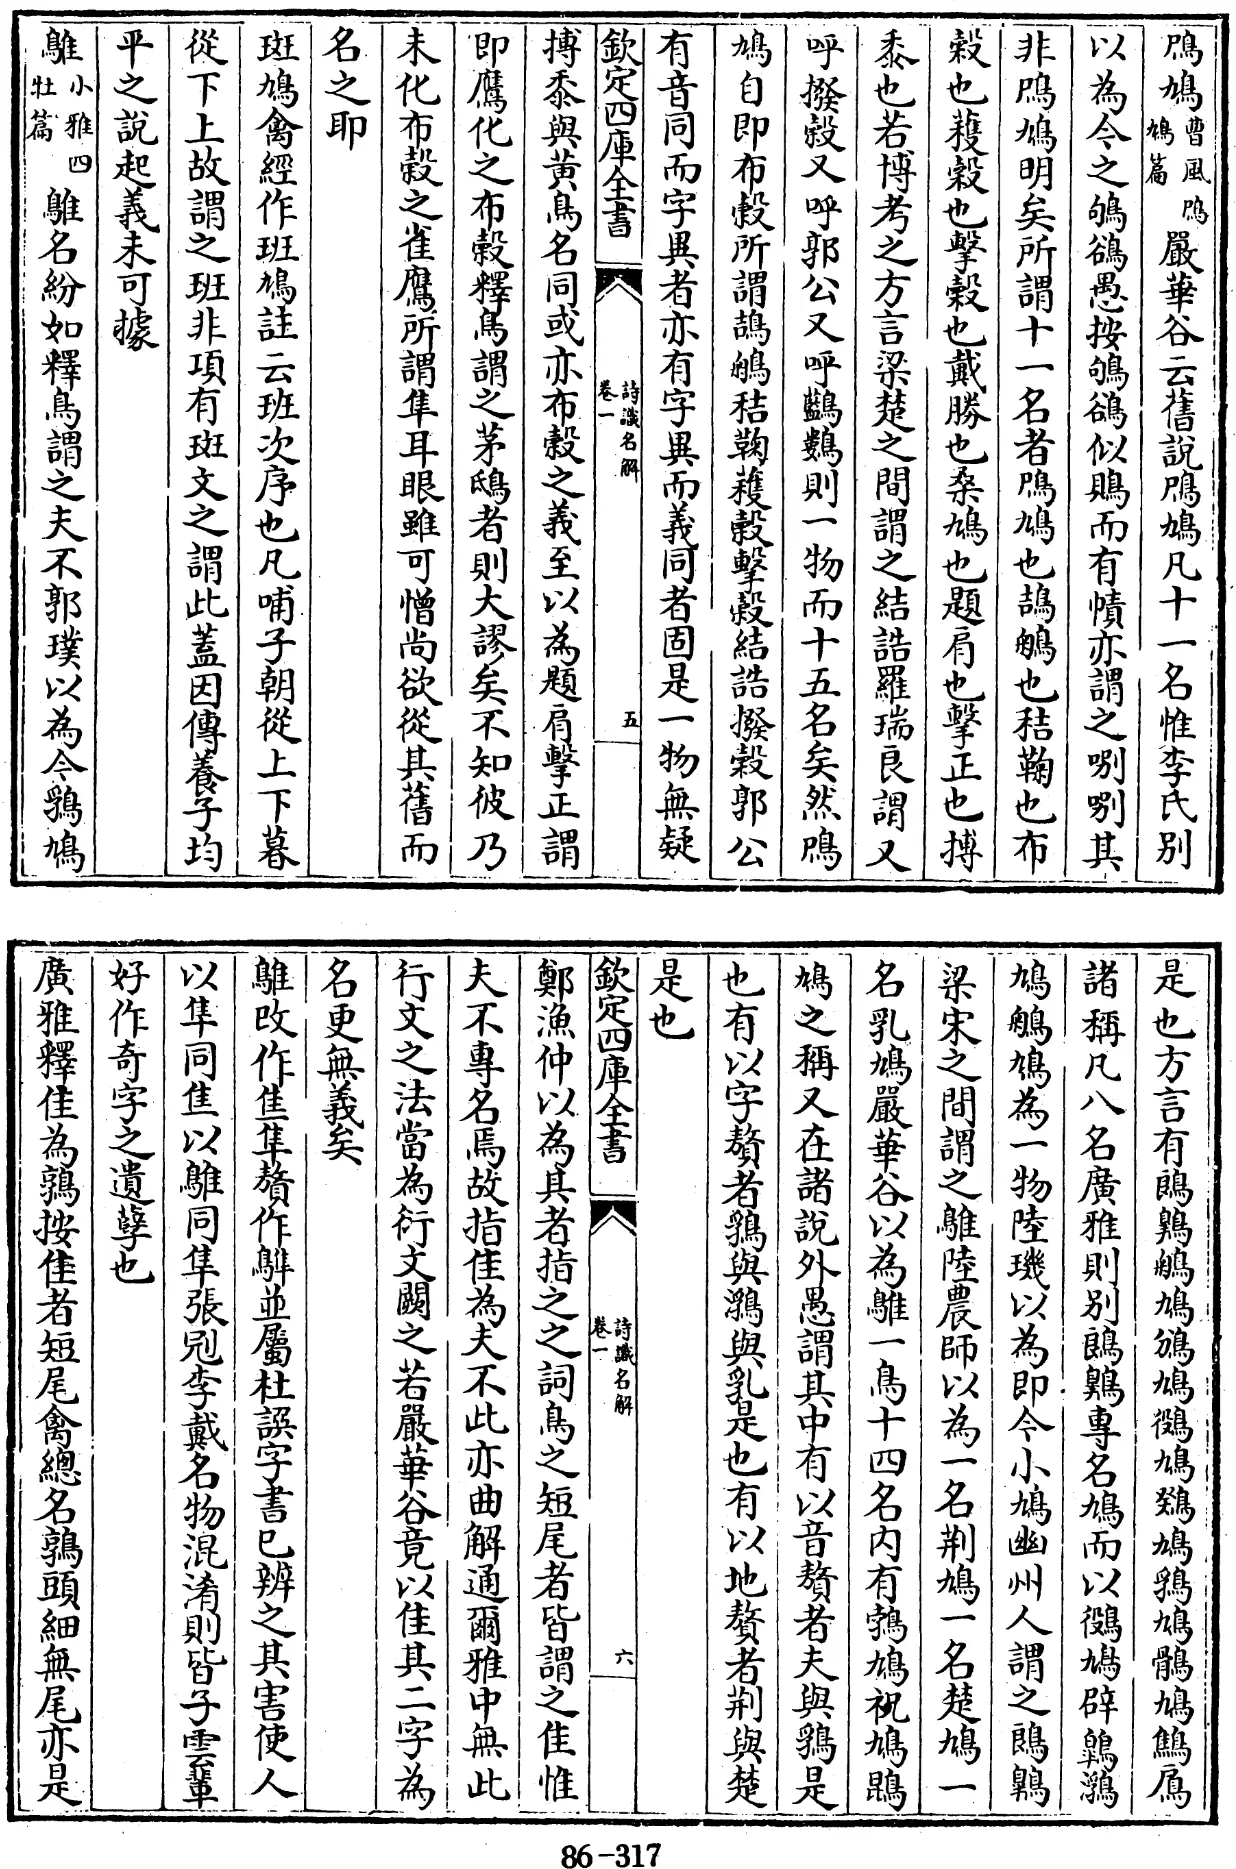 鳲鳩曹風鳲鳩篇嚴華谷云舊說鳲鳩凡十一名惟李氏別
以為今之鴝鵒愚按鴝鵒似鵙而有幘亦謂之唎唎其
非鳲鳩明矣所謂十一名者鳲鳩也鴶鵴也秸鞠也布
穀也穫穀也擊穀也戴勝也桑鳩也題肩也擊正也搏
黍也若博考之方言梁楚之間謂之結誥羅瑞良謂又
呼撥穀又呼郭公又呼鸛鷜則一物而十五名矣然鳲
鳩自即布穀所謂鴶鵴秸鞠穫穀擊穀結誥撥穀郭公
有音同而字異者亦有字異而義同者固是一物無疑
欽定四庫全書
詩識名解
卷一
五
搏黍與黃鳥名同或亦布穀之義至以為題肩擊正謂
即鷹化之布穀釋鳥謂之茅鴟者則大謬矣不知彼乃
未化布穀之雀鷹所謂隼耳眼雖可憎尚欲從其舊而
名之耶
斑鳩禽經作班鳩註云班次序也凡哺子朝從上下暮
從下上故謂之班非項有斑文之謂此蓋因傳養子均
平之說起義未可據
鵻小雅四牡篇鵻名紛如釋鳥謂之夫不郭璞以為今鶉鳩
是也方言有鶞鶪鵴鳩鳻鳩鷱鳩鵽鳩鶉鳩鶻鳩鷦鳸
諸稱凡八名廣雅則別鶞鶪專名鳩而以鷱鳩辟鶉鸅
鳩鵴鳩為一物陸璣以為即今小鳩幽州人謂之鶞鶪
梁宋之間謂之鵻陸農師以為一名荆鳩一名楚鳩一
名乳鳩嚴華谷以為鵻一鳥十四名內有鵓鳩祝鳩鶌
鳩之稱又在諸說外愚謂其中有以音贅者夫與鶉是
也有以字贅者鶉與鸅與乳是也有以地贅者荆與楚
是也
欽定四庫全書
詩識名解
卷一
六
鄭漁仲以為其者指之之詞鳥之短尾者皆謂之隹惟
夫不專名焉故指隹為夫不此亦曲解通爾雅中無此
行文之法當為衍文闕之若嚴華谷竟以隹其二字為
名更無義矣
鵻改作隹隼贅作鵻並屬杜譔字書已辨之其害使人
以隼同隹以鵻同隼張冠李戴名物混淆則皆子雲輩
好作奇字之遺孽也
廣雅釋隹為鶉按隹者短尾禽總名鶉頭細無尾亦是
86-317